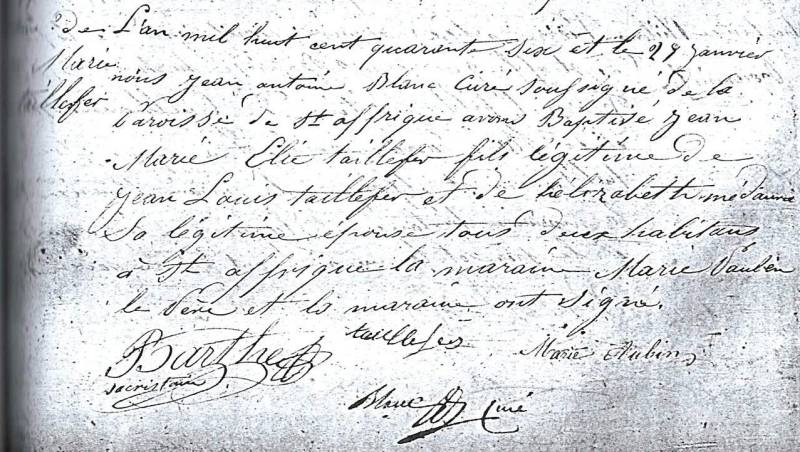 de L'an mil huit cent quarante six et le 29 janvier
Marie nous jean antoine Blanc Curé soussigné de la
paroisse de St affrique avons Baptisé jean
Marie Elie taillefer fils légitime de
jean Louis taillefer et de
Sa légitime epouse tous deux habitans
à St affrique la maraine Marie
le père et la maraine ont signé.
Barthe taillefer Marie Aubin
sacristain
Blanc curé